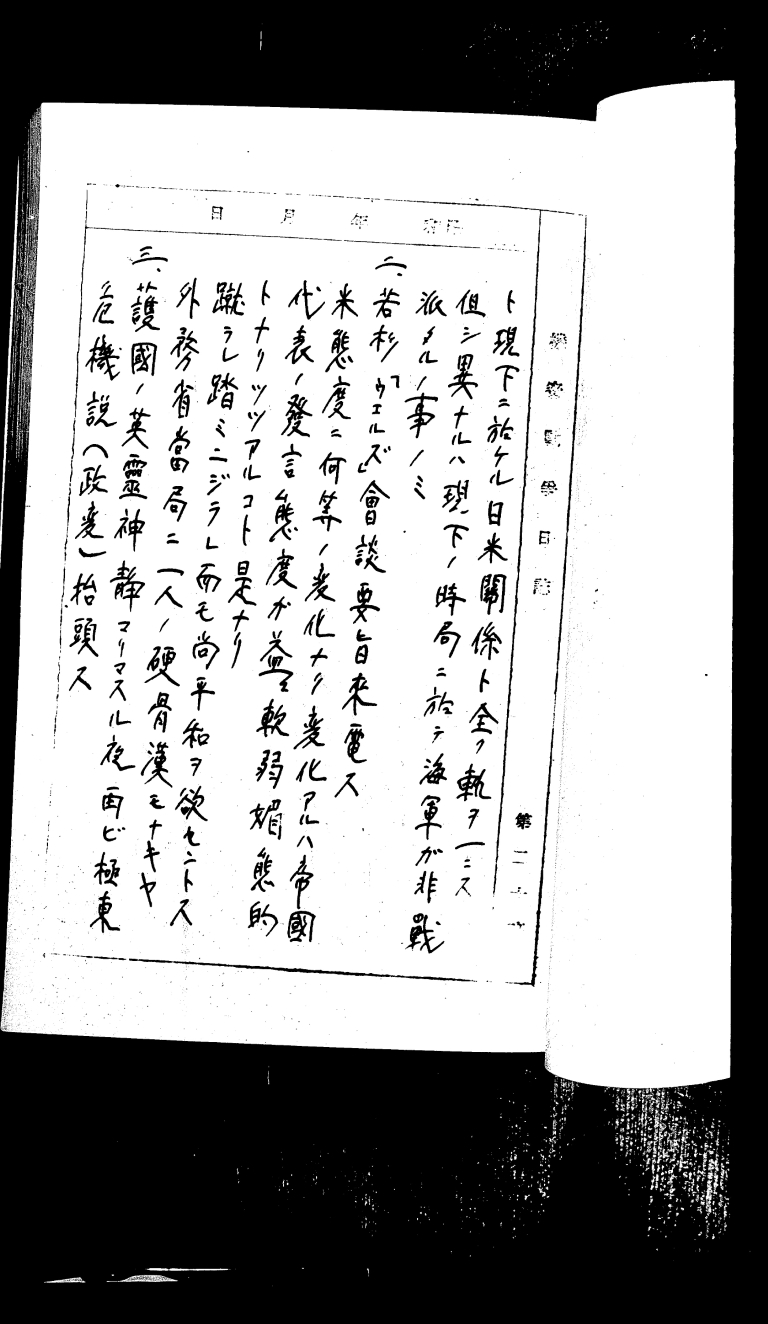 機密戰爭日誌
第二
日 月 年 昭和
ト現下ニ於ケル日米關係ト全ク軌ヲ一ニス
但シ異ナルハ現下ノ時局ニ於テ海軍ガ非戰
派タルノ事ノミ
二、若杉「ウエルズ」會談要旨来電ス
米態度ニ何等ノ変化ナク変化アルハ帝國
代表ノ發言態度ガ益々軟弱媚態的
トナリツツアルコト是ナリ
蹴ラレ踏ミニジラレ而モ尚平和ヲ欲セントス
外務省當局ニ一人ノ硬骨漢モナキヤ
三、護國ノ英靈神静マリマスル夜再ビ極東
危機説(政変)抬頭ス